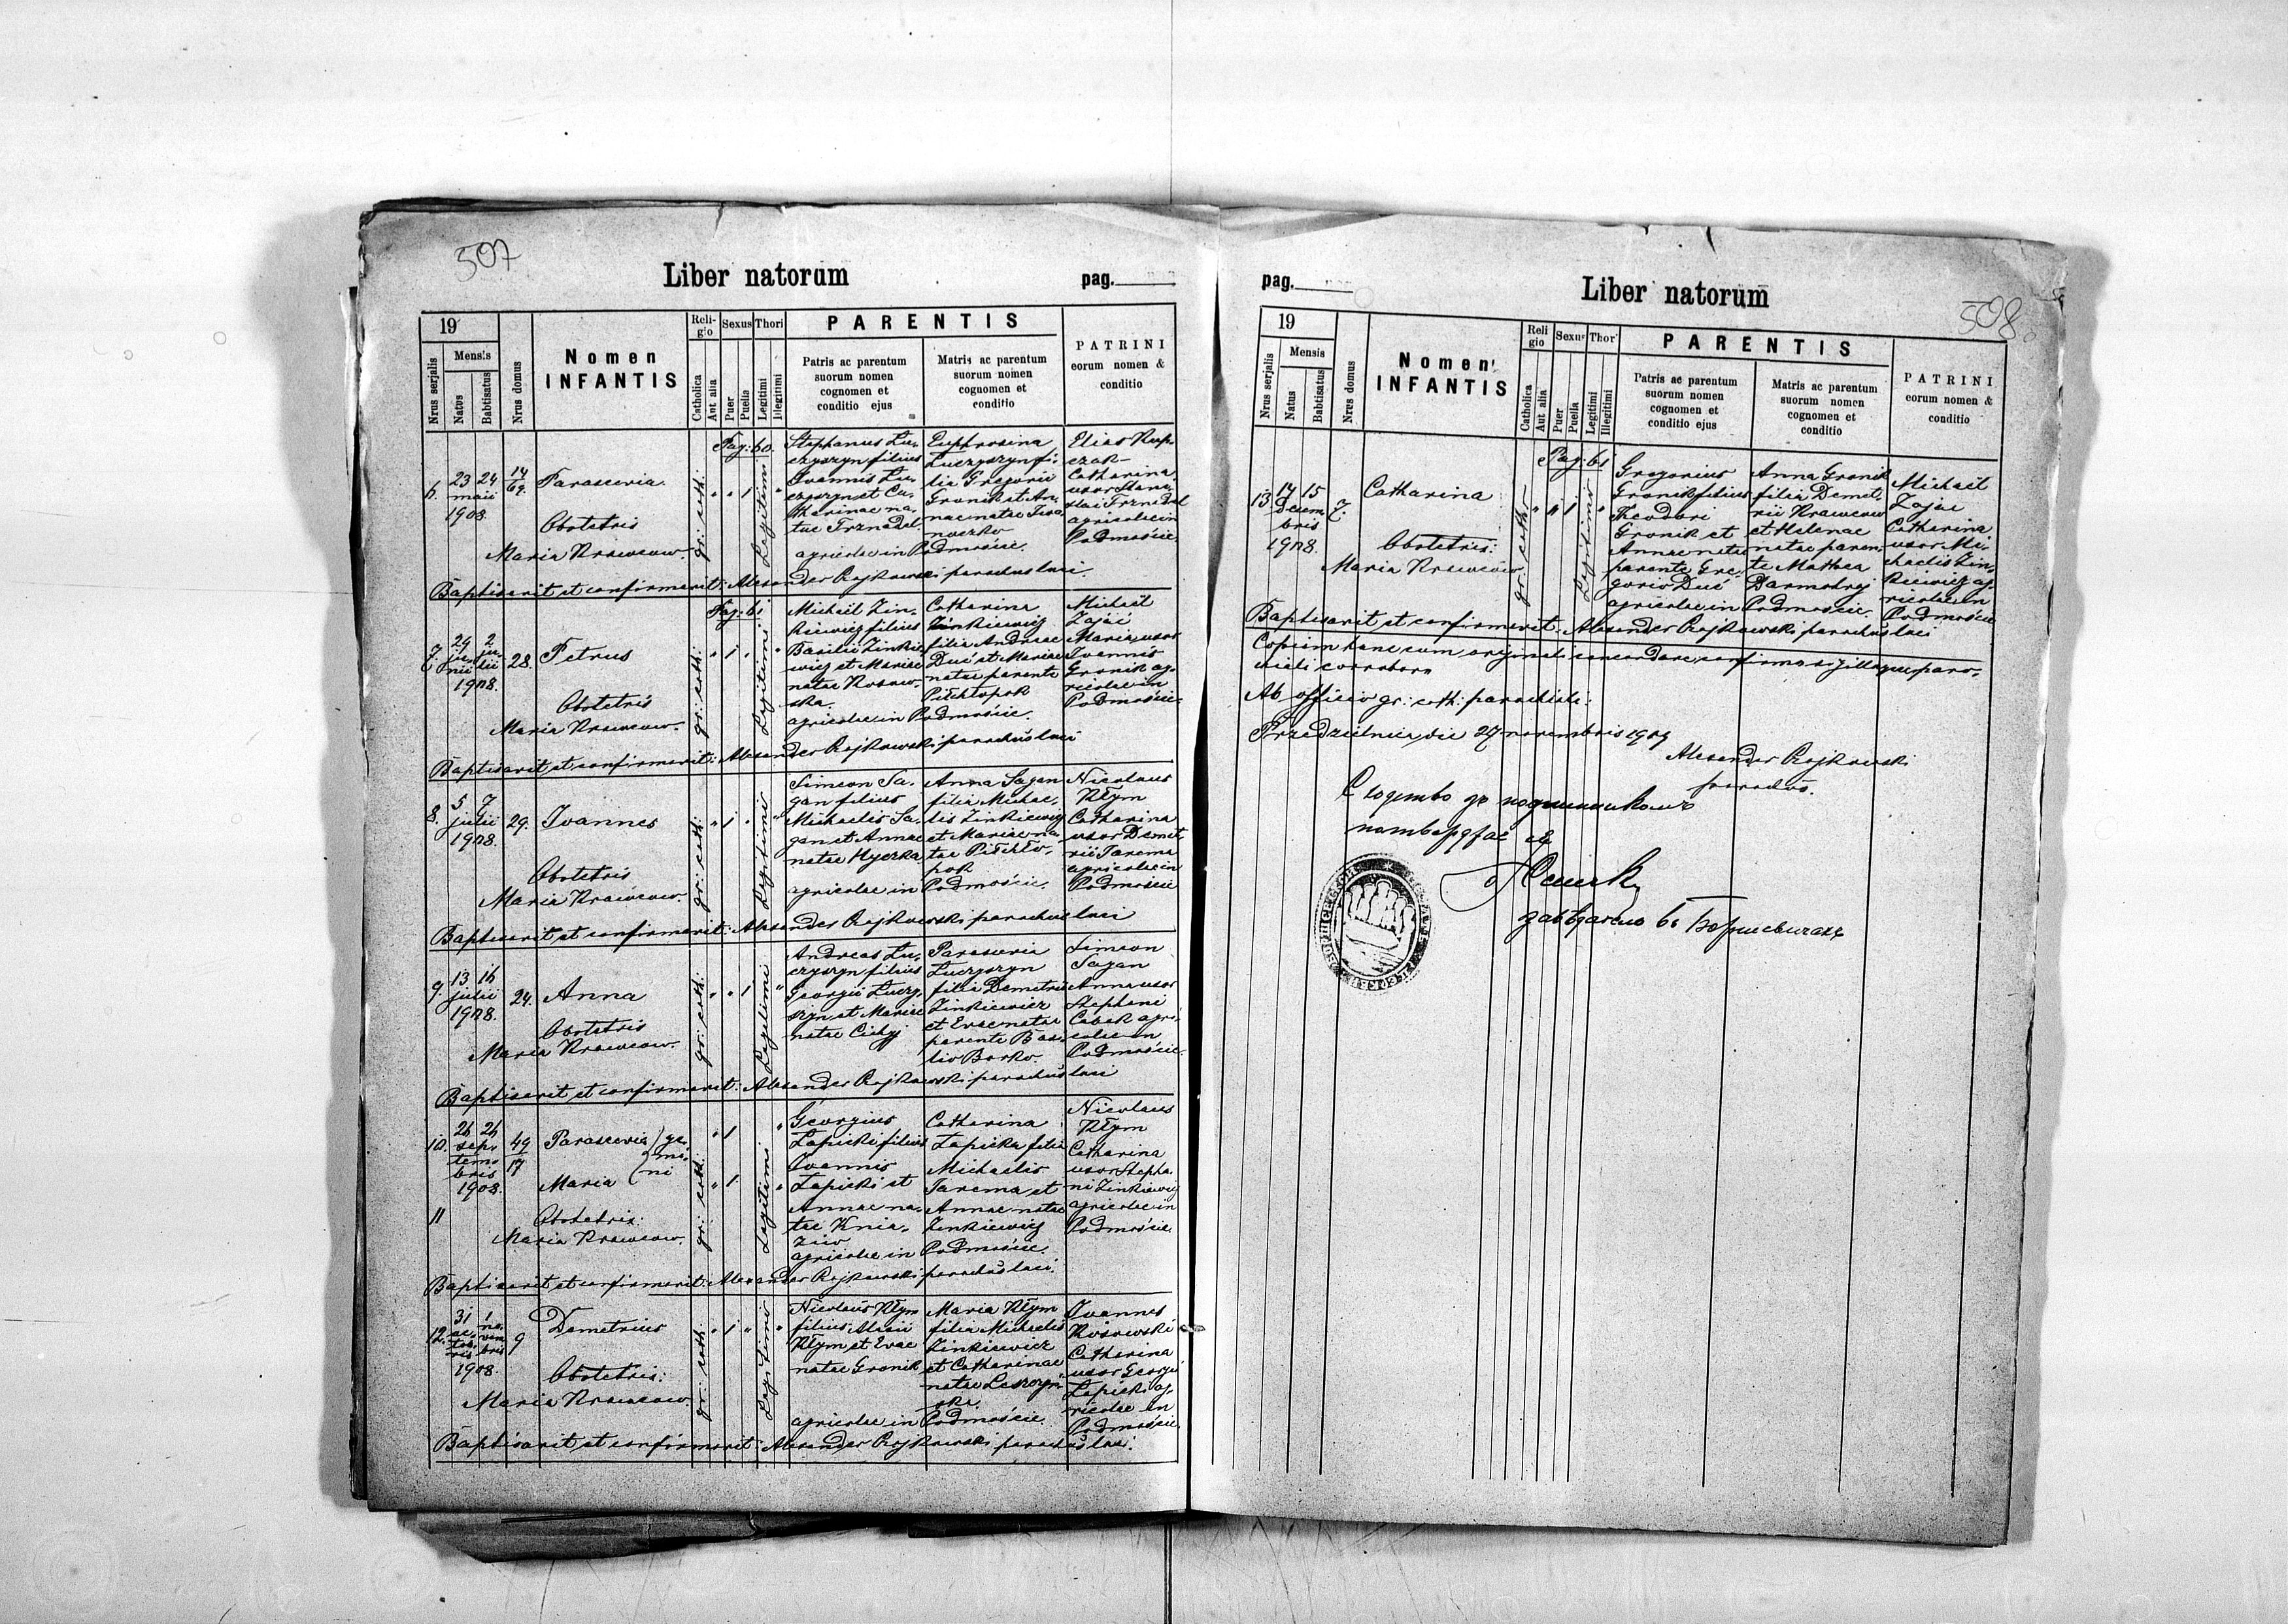 507
Liber natorum
pag.
19
Nrus serjalis
Mensis
Natus
Babtisatus
Nrus domus
Nomen
INFANTIS
Reli-
gio
Catholica
Aut alia
Sexus
Puer
Puella
Thori
Legitimi
Illegitimi
PARENTIS
Patris ac parentum
suorum nomen
cognomen et
conditio ejus
Matris ac parentum
suorum nomen
cognomen et
conditio
PATRINI
eorum nomen &
conditio
Pag: 60.
6.
23 24
maii
1908.
14
69.
Parascevia
Obstetris
Maria Krawcow.
gr: cath:
Legitimi
Stephanus Lu-
czyszyn filius
Joannis Lu-
czyszyn et Ca-
tharinae na-
tae Trznadel
agricolae in Podmoście.
Euphrosina
Luczyszyn fi-
lia Gregorii
Gronik et An-
nae natae
Elias
Catharina
uxor
Trznadel
agricolae in
Podmoście
Baptisavit et confirmavit: Alexander Rojkowski parochus loci.
Pag: 61
7.
24 2
ju- ju-
nii lii
1908.
28.
Petrus
Obstetris
Maria Krawcow.
gr: cath:
Legitimi
Michaël Zin-
kiewicz filius
Basilii Zinkie-
wicz et Mariae
natae Kosow-
ska.
agricolae in Podmoście.
Catharina
Zinkiewicz
filia Andreae
Duć et Mariae
natae parente
Michaël
Zając
Maria uxor
Joannis
Gronik ag-
ricolae in
Podmoście.
Baptisavit et confirmavit: Alexander Rojkowski parochus loci
8.
5 7
julii
1908.
29.
Joannes
Obstetris
Maria Krawcow.
gr: cath:
Legitimi
Simeon Sa-
gan filius
Michaelis Sa-
gan et Annae
natae Hyczka
agricolae in Podmoście.
Anna Sagan
filia Michae-
lis Zinkiewicz
et Mariae na-
tae
Nicolaus
Kłym
Catharina
uxor Demet-
rii Jarema
agricolae in
Podmoście
Baptisavit et confirmavit: Alexander Rojkowski parochus loci
9
13. 16
julii
1908.
24.
Anna
Obstetris
Maria Krawcow.
gr: cath:
Legitimi
Andreas Lu-
czyszyn filius
Georgii Luczy-
szyn et Mariae
natae Cichyj
Parascevia
Luczyszyn
filia Demetrii
Zinkiewicz
et Evae natae
parente Basi-
lio Borko.
Simeon
Sagan
Anna uxor
Stephani
Cabak agri-
colae in
Podmoście.
Baptisavit et confirmavit: Alexander Rojkowski parochus loci
10.
26 26
sep-
tem-
bris
1908.
11
49
17
Parascevia
Maria
ge-
mi-
ni
Obstetris:
Maria Krawcow.
gr: cath:
Legitimi
Georgius
Łapicki filius
Joannis
Łapicki et
Annae na-
tae Knia-
ziw
agricolae in Podmoście.
Catharina
Łapicka filia
Michaelis
Jarema et
Annae natae
Zinkiewicz
Nicolaus
Kłym
Catharina
uxor Stepha-
ni Zinkiewicz
agricolae in
Podmoście
Baptisavit et confirmavit: Alexander Rojkowski parochus loci.
12.
31 1
oc- no-
tob- vem-
ris bris
1908.
9
Demetrius
Obstetris:
Maria Krawcow.
gr: cath:
Legitimi
Nicolaus Kłym
filius Alexii
Kłym et Evae
natae Gronik
agricolae in Podmoście.
Maria Kłym
filia Michaelis
Zinkiewicz
et Catharinae
natae Leszczyn-
ska.
Joannes
Kosowski
Catharina
uxor Georgii
Łapicki ag-
ricolae in
Podmoście.
Baptisavit et confirmavit: Alexander Rojkowski parochus loci.
508.
pag.
Liber natorum
19
Nrus serjalis
Mensis
Natus
Babtisatus
Nrus domus
Nomen
INFANTIS
Reli
gio
Catholica
Aut alia
Sexus
Puer
Puella
Thori
Legitimi
Illegitimi
PARENTIS
Patris ac parentum
suorum nomen
cognomen et
conditio ejus
Matris ac parentum
suorum nomen
cognomen et
conditio
PATRINI
eorum nomen &
conditio
Pag: 61
13
14 15
Decem
bris
1908.
7.
Catharina
Obstetris:
Maria Krawcow
gr: cath:
Legitimi
Gregorius
Gronik filius
Theodori
Gronik et
Annae natae
parente Gre-
gorio Duć
agricolae in Podmoście.
Anna Gronik
filia Demet-
rii Krawcow
et Helenae
natae paren-
te Mathaea
Darmohraj
Michaël
Zając
Catharina
uxor Mi-
chaelis Zin-
kiewicz ag-
ricolae in
Podmoście
Baptisavit et confirmavit: Alexander Rojkowski parochus loci
Copiam hanc cum originali concordare confirmo sigilloque paro-
chiali corroboro
Ab officio gr: cath: parochiali:
Przedzielnica, die 27 novembris 1909
Alexander Rojkowski
parochus.